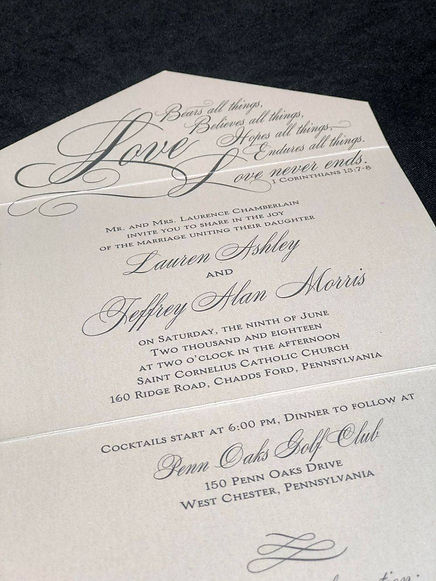 Love Bears all things,
Believes all things,
Hopes all things,
Endures all things.
Love never ends.
1 Corinthians 13:7-8
Mr. and Mrs. Laurence Chamberlain
invite you to share in the joy
of the marriage uniting their daughter
Lauren Ashley
and
Jeffrey Alan Morris
on Saturday, the ninth of June
Two thousand and eighteen
at two o'clock in the afternoon
Saint Cornelius Catholic Church
160 Ridge Road, Chadds Ford, Pennsylvania
Cocktails start at 6:00 pm, Dinner to follow at
Penn Oaks Golf Club
150 Penn Oaks Drive
West Chester, Pennsylvania